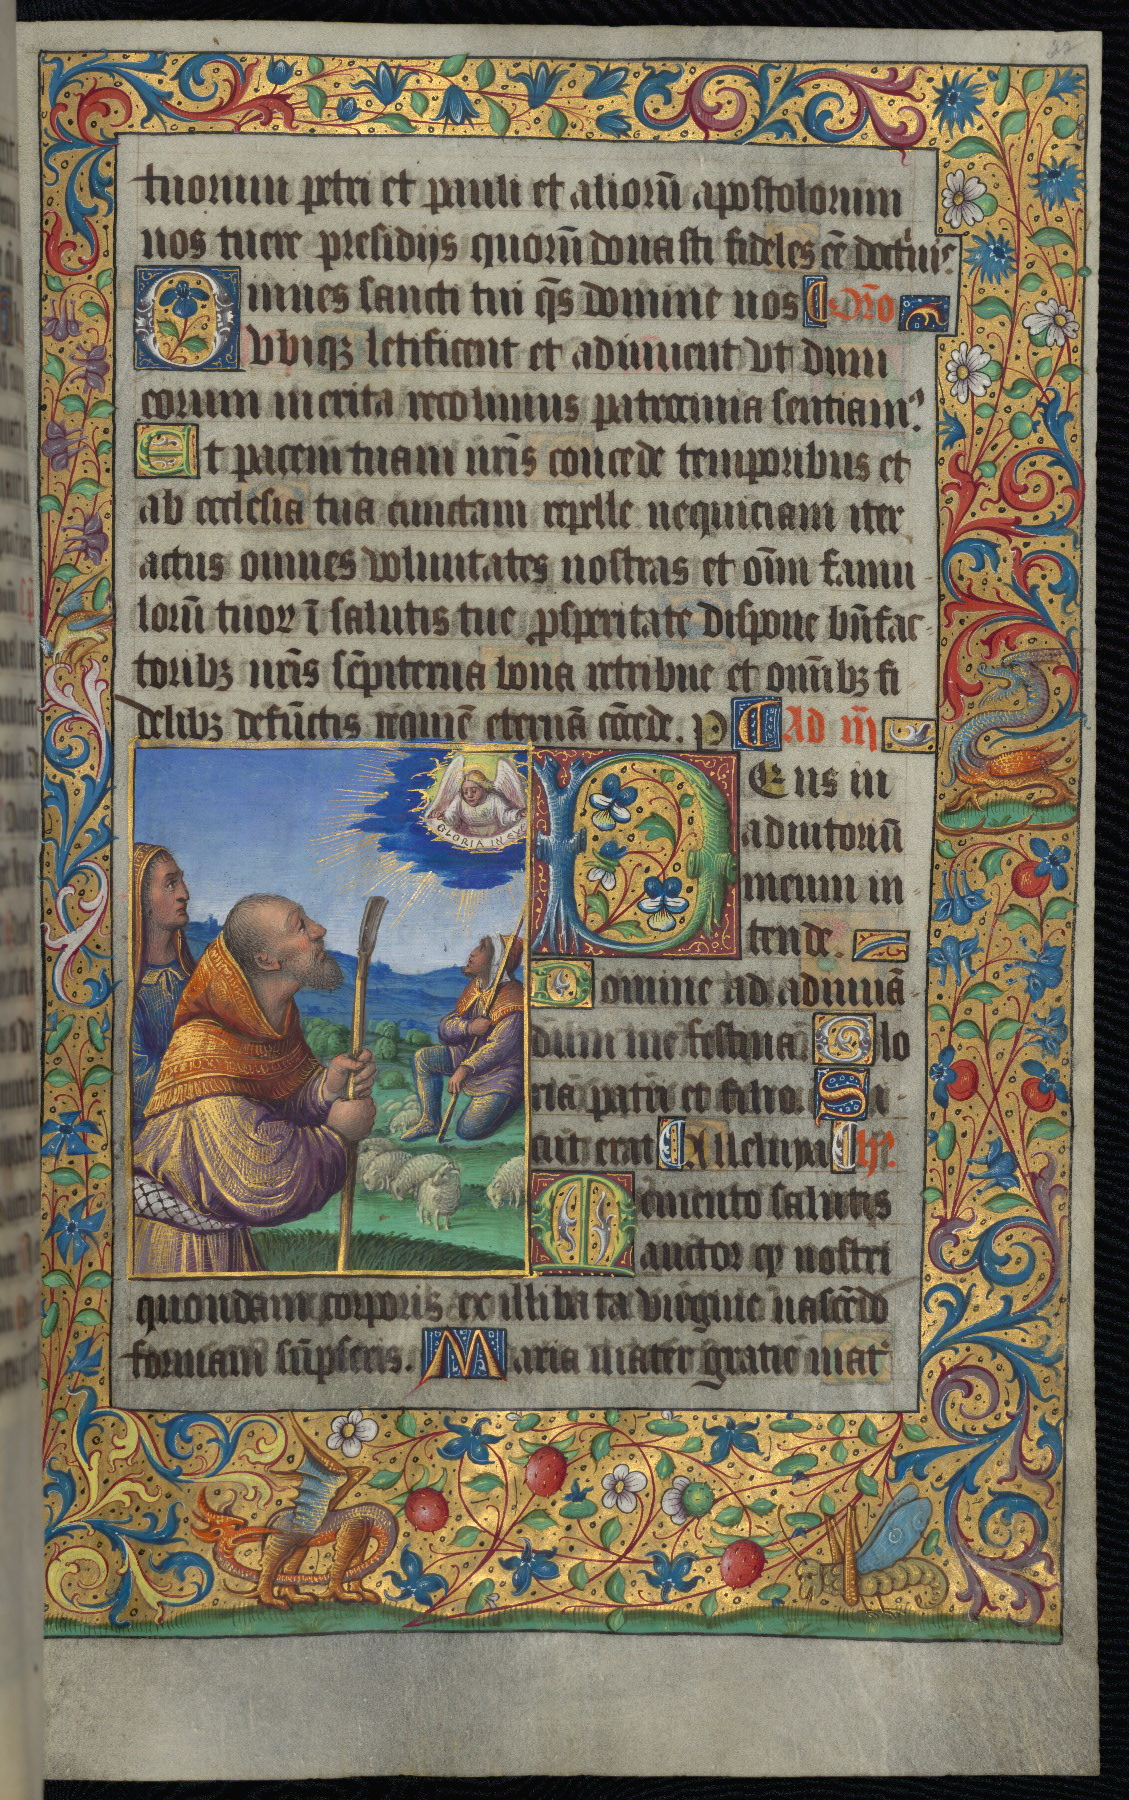 tuorum petri et pauli et alioru̅ apostolorum
nos tuere presidijs quoru̅ donasti fideles ee̅ doctrinis.
Omnes sancti tui q̅s domine nos Oro̅
vbiqꝫ letificent et adiuuent vt dum
eorum merita recolimus patrocinia sentiam⁹.
Et pacem tuam nr̅is concede temporibus et
ab ecclesia tua cunctam repelle nequiciam iter
actus omnes voluntates nostras et om̅ famu
loru̅ tuoꝝ i̅ salutis tue ꝓsperitate dispone bn̅fac
toribꝫ nr̅is se̅piterna bona retribue et omi̅bꝫ fi
delibꝫ defu̅ctis requie̅ eterna̅ co̅cede. P Ad m̅
GLORIA IN EXC
Deus in
adiutoriu̅
meum in
tende.
Domine ad adiuua̅
dum me festina. Glo
ria patri et filio. Si
cut erat Alleluya Ih⁹.
Memento salutis
auctor qꝫ nostri
quondam corporis ex illibata virgine nasce̅do
formam su̅pseris. Maria mater gratie mat̉
22